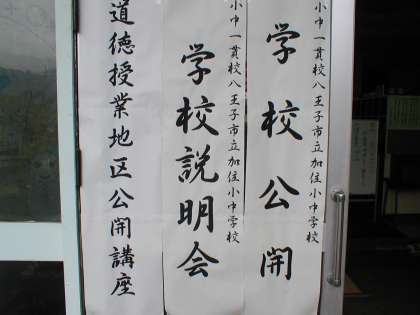 小中一貫校八王子市立加住小中学校
学校公開
小中一貫校八王子市立加住小中学校
学校説明会
道徳授業地区公開講座